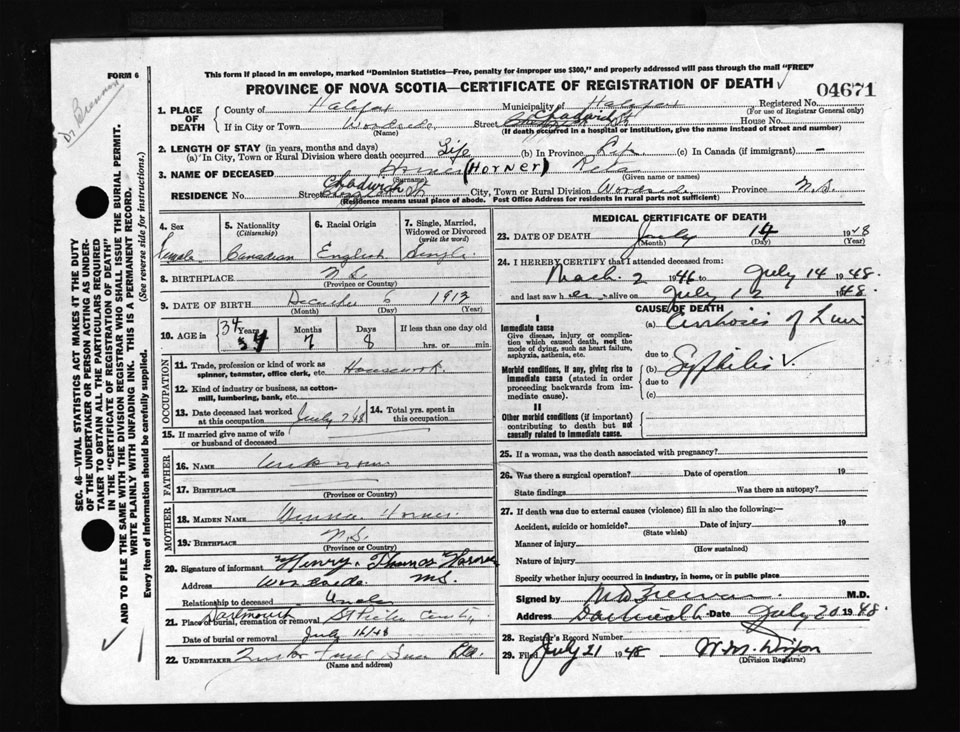 FORM 6
Dr Brennan
This form if placed in an envelope, marked "Dominion Statistics—Free, penalty for improper use $300," and properly addressed will pass through the mail "FREE"
PROVINCE OF NOVA SCOTIA—CERTIFICATE OF REGISTRATION OF DEATH
04671
1. PLACE OF DEATH
County of Halifax Municipality of Halifax Registered No.
(For use of Registrar General only)
If in City or Town Woodside Street Chadwick St House No.
(Name) (If death occurred in a hospital or institution, give the name instead of street and number)
2. LENGTH OF STAY (in years, months and days)
(a) In City, Town or Rural Division where death occurred Life (b) In Province Life (c) In Canada (if immigrant) —
3. NAME OF DECEASED Horner (HORNER) Reta
(Surname) (Given name or names)
RESIDENCE No. Street Chadwick St City, Town or Rural Division Woodside Province N.S.
(Residence means usual place of abode. Post Office Address for residents in rural parts not sufficient)
4. Sex 5. Nationality (Citizenship) 6. Racial Origin 7. Single, Married, Widowed or Divorced (write the word)
Female Canadian English Single
8. BIRTHPLACE N.S.
(Province or Country)
9. DATE OF BIRTH December 6 1913
(Month) (Day) (Year)
10. AGE in 34 Years 7 Months 8 Days If less than one day old
hrs. or min.
OCCUPATION
11. Trade, profession or kind of work as spinner, teamster, office clerk, etc. Housework.
12. Kind of industry or business, as cotton-mill, lumbering, bank, etc.
13. Date deceased last worked at this occupation July 7 48 14. Total yrs. spent in this occupation
15. If married give name of wife or husband of deceased
FATHER
16. NAME Unknown
17. BIRTHPLACE
(Province or Country)
MOTHER
18. MAIDEN NAME Horner.
19. BIRTHPLACE N.S.
(Province or Country)
20. Signature of informant Henry Thomas Horner
Address Woodside. N.S.
Relationship to deceased Uncle
21. Place of burial, cremation or removal Dartmouth St Peters
Date of burial or removal July 16/48
22. UNDERTAKER Ltd.
(Name and address)
MEDICAL CERTIFICATE OF DEATH
23. DATE OF DEATH July 14 1948
(Month) (Day) (Year)
24. I HEREBY CERTIFY that I attended deceased from:
Mach. 2 1946 to July 14 1948.
and last saw her alive on July 12 1948.
CAUSE OF DEATH
I
Immediate cause
Give disease, injury or complication which caused death, not the mode of dying, such as heart failure, asphyxia, asthenia, etc.
(a) Cirrhosis of Liver
due to
Morbid conditions, if any, giving rise to immediate cause (stated in order proceeding backwards from immediate cause).
(b) Syphilis
due to
(c)
II
Other morbid conditions (if important) contributing to death but not causally related to immediate cause.
25. If a woman, was the death associated with pregnancy?
26. Was there a surgical operation? Date of operation 19
State findings Was there an autopsy?
27. If death was due to external causes (violence) fill in also the following:—
Accident, suicide or homicide? Date of injury 19
(State which)
Manner of injury
(How sustained)
Nature of injury
Specify whether injury occurred in industry, in home, or in public place
Signed by M.D.
Address Dartmouth Date July 20 1948.
28. Registrar's Record Number
29. Filed July 21 1948 W.M. Dixon
(Division Registrar)
SEC. 46—VITAL STATISTICS ACT MAKES IT THE DUTY
OF THE UNDERTAKER OR PERSON ACTING AS UNDER-
TAKER TO OBTAIN ALL THE PARTICULARS REQUIRED
IN THE "CERTIFICATE OF REGISTRATION OF DEATH"
AND TO FILE THE SAME WITH THE DIVISION REGISTRAR WHO SHALL ISSUE THE BURIAL PERMIT.
WRITE PLAINLY WITH UNFADING INK. THIS IS A PERMANENT RECORD.
Every item of Information should be carefully supplied. (See reverse side for instructions.)